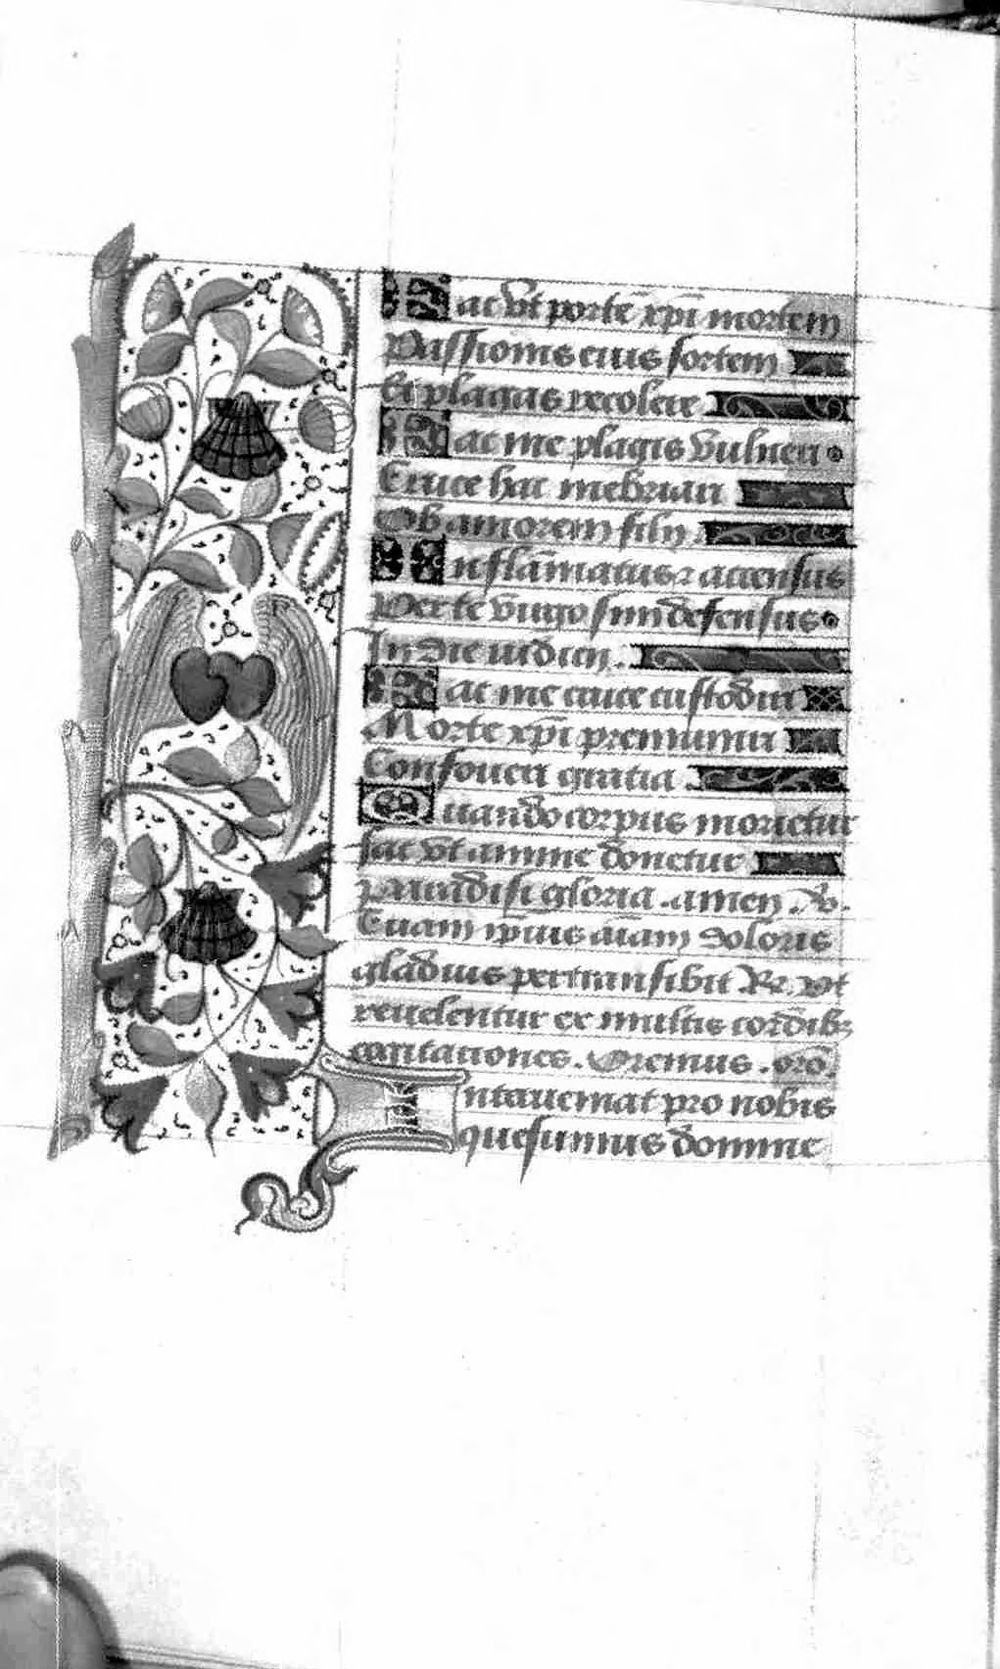 Fac vt portē xp̄i mortem
Passionis eius sortem
Et plagas recolere
Fac me plagis vulnerari
Cruce hac inebriari
Ob amorem filij
Inflāmatus ⁊ accensus
Per te virgo sim defensus
In die iudicij.
Fac me cruce custodiri
Morte xp̄i premuniri
Confoueri gratia
Quando corpus morietur
fac vt anime donetur
Paradisi gloria. amen. V.
Tuam ip̄ius aīam doloris
gladius pertransibit R. vt
reuelentur ex multis cordibꝫ
cogitationes. Oremus. orō.
Interueniat pro nobis
quesumus domine